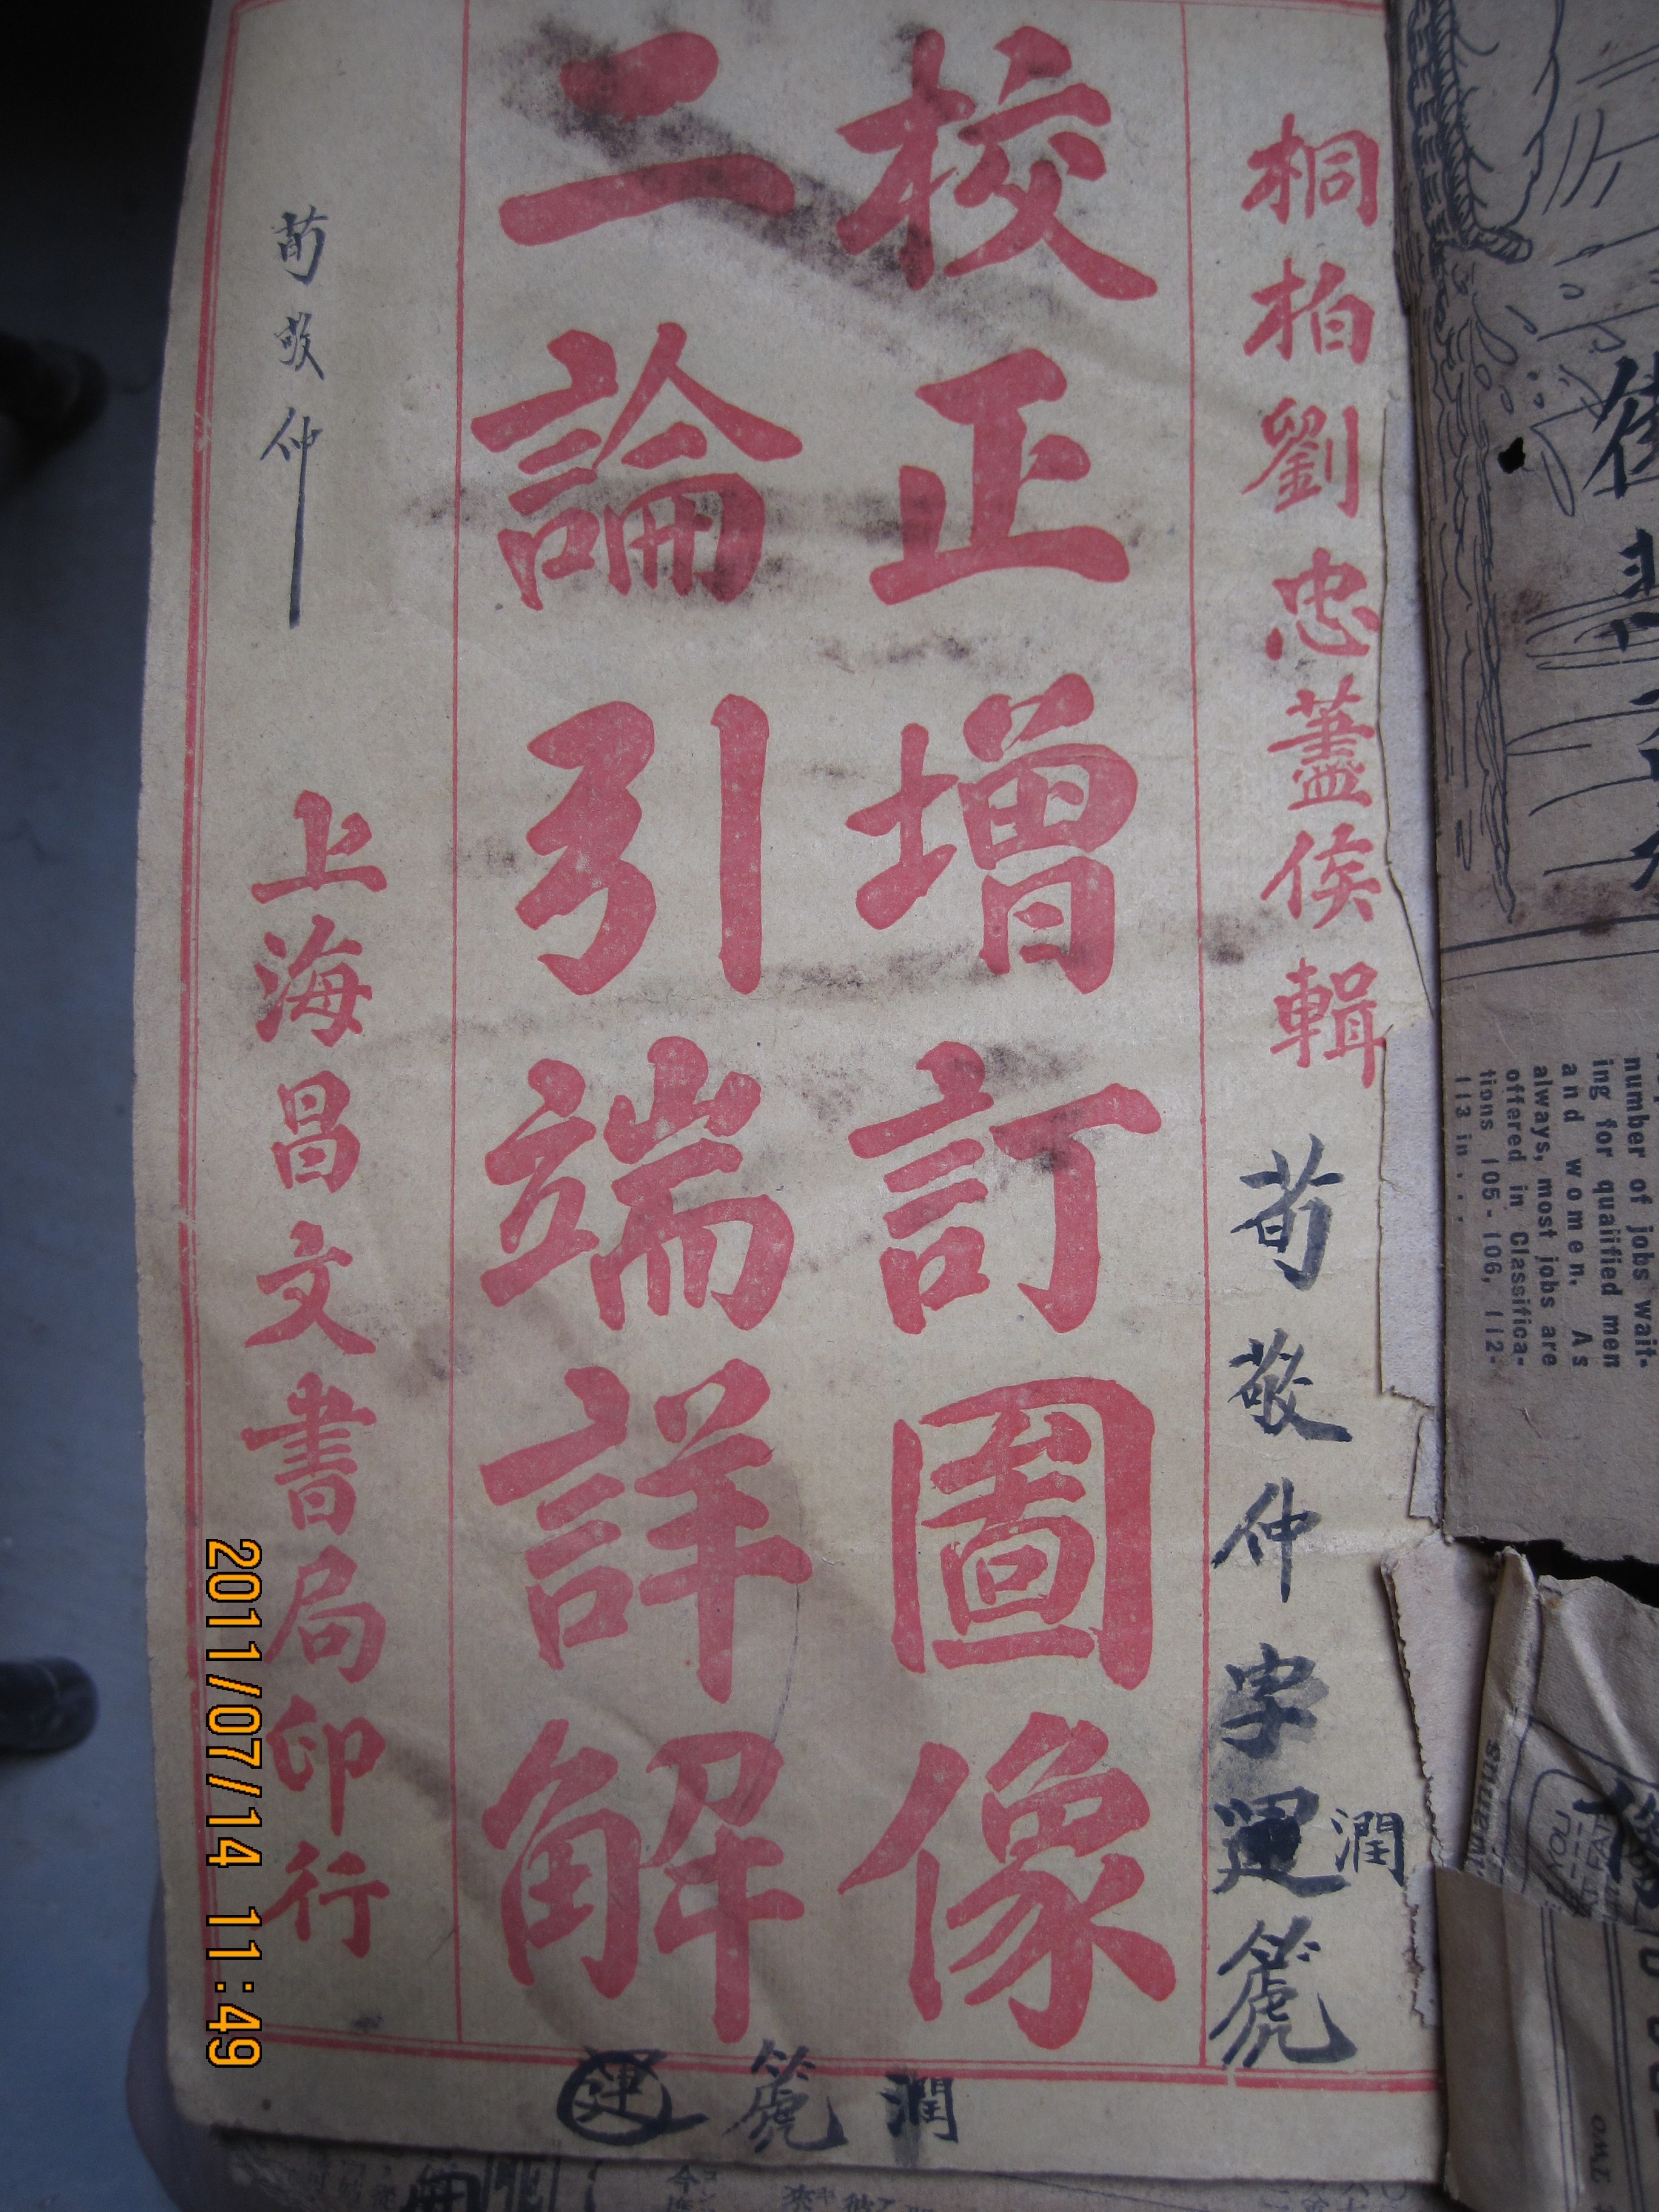 桐柏劉忠藎侯輯
荀敬仲字運篪
潤
校正增訂圖像
二論引端詳解
荀敬仲
上海昌文書局印行
運篪潤
number of jobs wait-
ing for qualified men
and women. As
always, most jobs are
offered in Classifica-
tions 105-106, 112-
113 in
YOU
TWO
2011/07/14 11:49